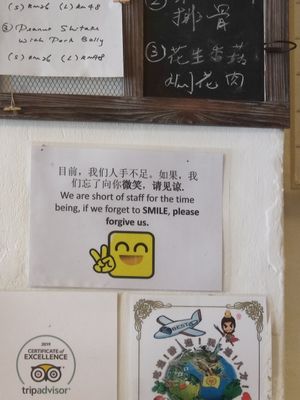 (S) RM26 (L) RM48
③ Peanut Shitake
with Pork Belly
(S) RM26 (L) RM48
排骨
③ 花生香菇
花肉
目前，我们人手不足。如果，我
们忘了向你微笑，请见谅.
We are short of staff for the time
being, if we forget to SMILE, please
forgive us.
2019
CERTIFICATE of
EXCELLENCE
tripadvisor
BEST